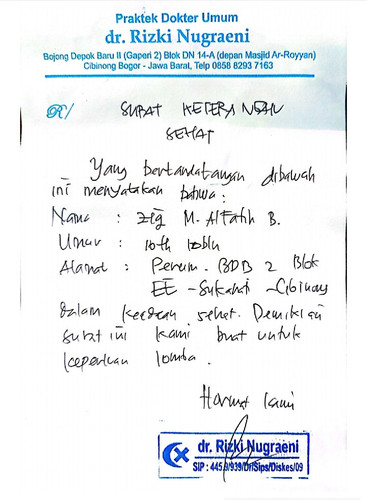 Praktek Dokter Umum
dr. Rizki Nugraeni
Bojong Depok Baru II (Gaperi 2) Blok DN 14-A (depan Masjid Ar-Royyan)
Cibinong Bogor - Jawa Barat, Telp 0858 8293 7163
R/ SURAT KETERANGAN
SEHAT
Yang bertandatangan dibawah
ini menyatakan bahwa :
Nama : M. Alfatih B.
Umur : 10th 10bln
Alamat : Perum. BDB 2 Blok
EE - Sukahati - Cibinong
dalam keadaan sehat. Demikian
surat ini kami buat untuk
keperluan lomba.
Hormat kami
dr. Rizki Nugraeni
SIP :